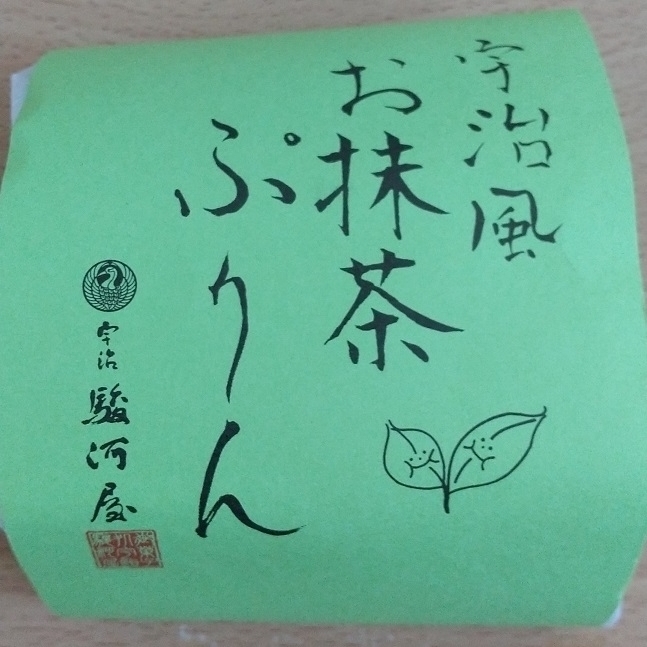 宇治風
お抹茶
ぷりん
宇治
駿河屋